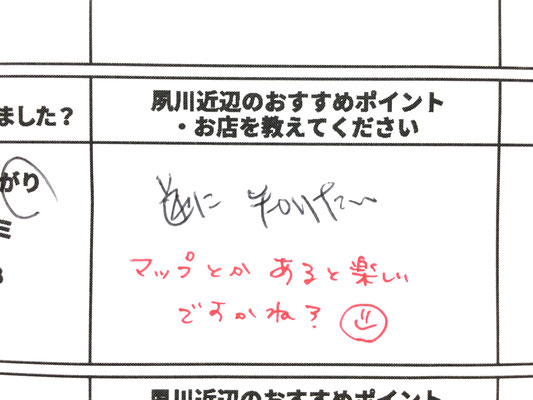 夙川近辺のおすすめポイント
・お店を教えてください
ました？
がり
ミ
逆に 知りたい
マップとか あると楽しい
ですかね？
夙川近辺のおすすめポイント